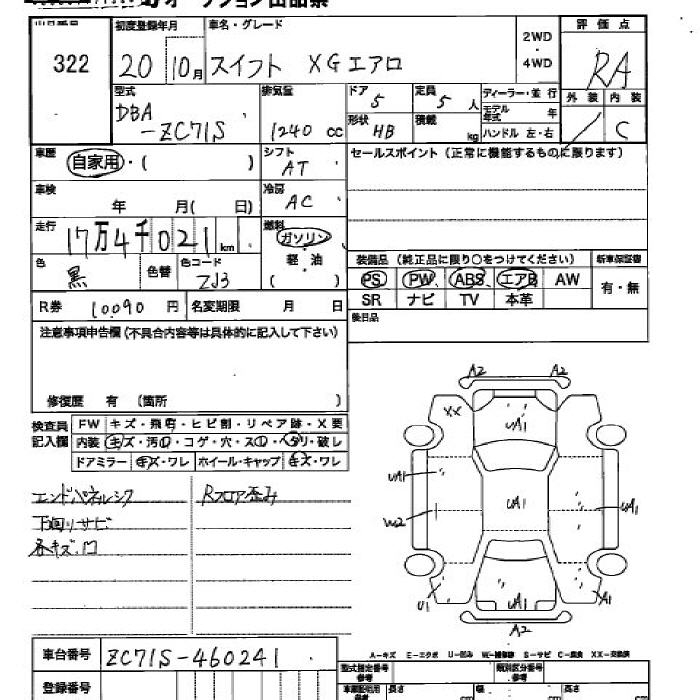 322
初度登録年月
車名・グレード
20 10月 スイフト XGエアロ
2WD
・
4WD
評価点
RA
外装 内装
/ C
型式
DBA
-ZC71S
排気量
1240 cc
ドア 5
定員 5 人
形状 HB
積載 kg
ディーラー・並行
モデル年式 年
ハンドル 左・右
車歴
自家用・( )
シフト
AT
セールスポイント(正常に機能するものに限ります)
車検
年 月( 日)
冷房
AC
走行
17万4千021km
燃料
ガソリン
軽・油
( )
色
黒
色替
色コード
ZJ3
装備品 (純正品に限り○をつけてください)
新車保証書
PS PW ABS エアB AW
有・無
SR ナビ TV 本革
R券 10090 円
名変期限 月 日
後日品
注意事項申告欄(不具合内容等は具体的に記入して下さい)
修復歴 有 (箇所 )
検査員
記入欄
FW キズ・飛石・ヒビ割・リペア跡・X要
内装 キズ・汚レ・コゲ・穴・スレ・ヘタリ・破レ
ドアミラー キズ・ワレ ホイール・キャップ キズ・ワレ
エンドパネルシワ
Rフロア歪み
下回りサビ
各キズ.凹
A2 A2
XX
UA1
UA1
UA1
UA1
W2
U1
UA1
A1
A2
A-キズ E-エクボ U-凹み W-補修跡 S-サビ C-腐食 XX-交換済
車台番号 ZC71S-460241
登録番号
型式指定番号
類別区分番号
長さ cm
幅 cm
高さ cm